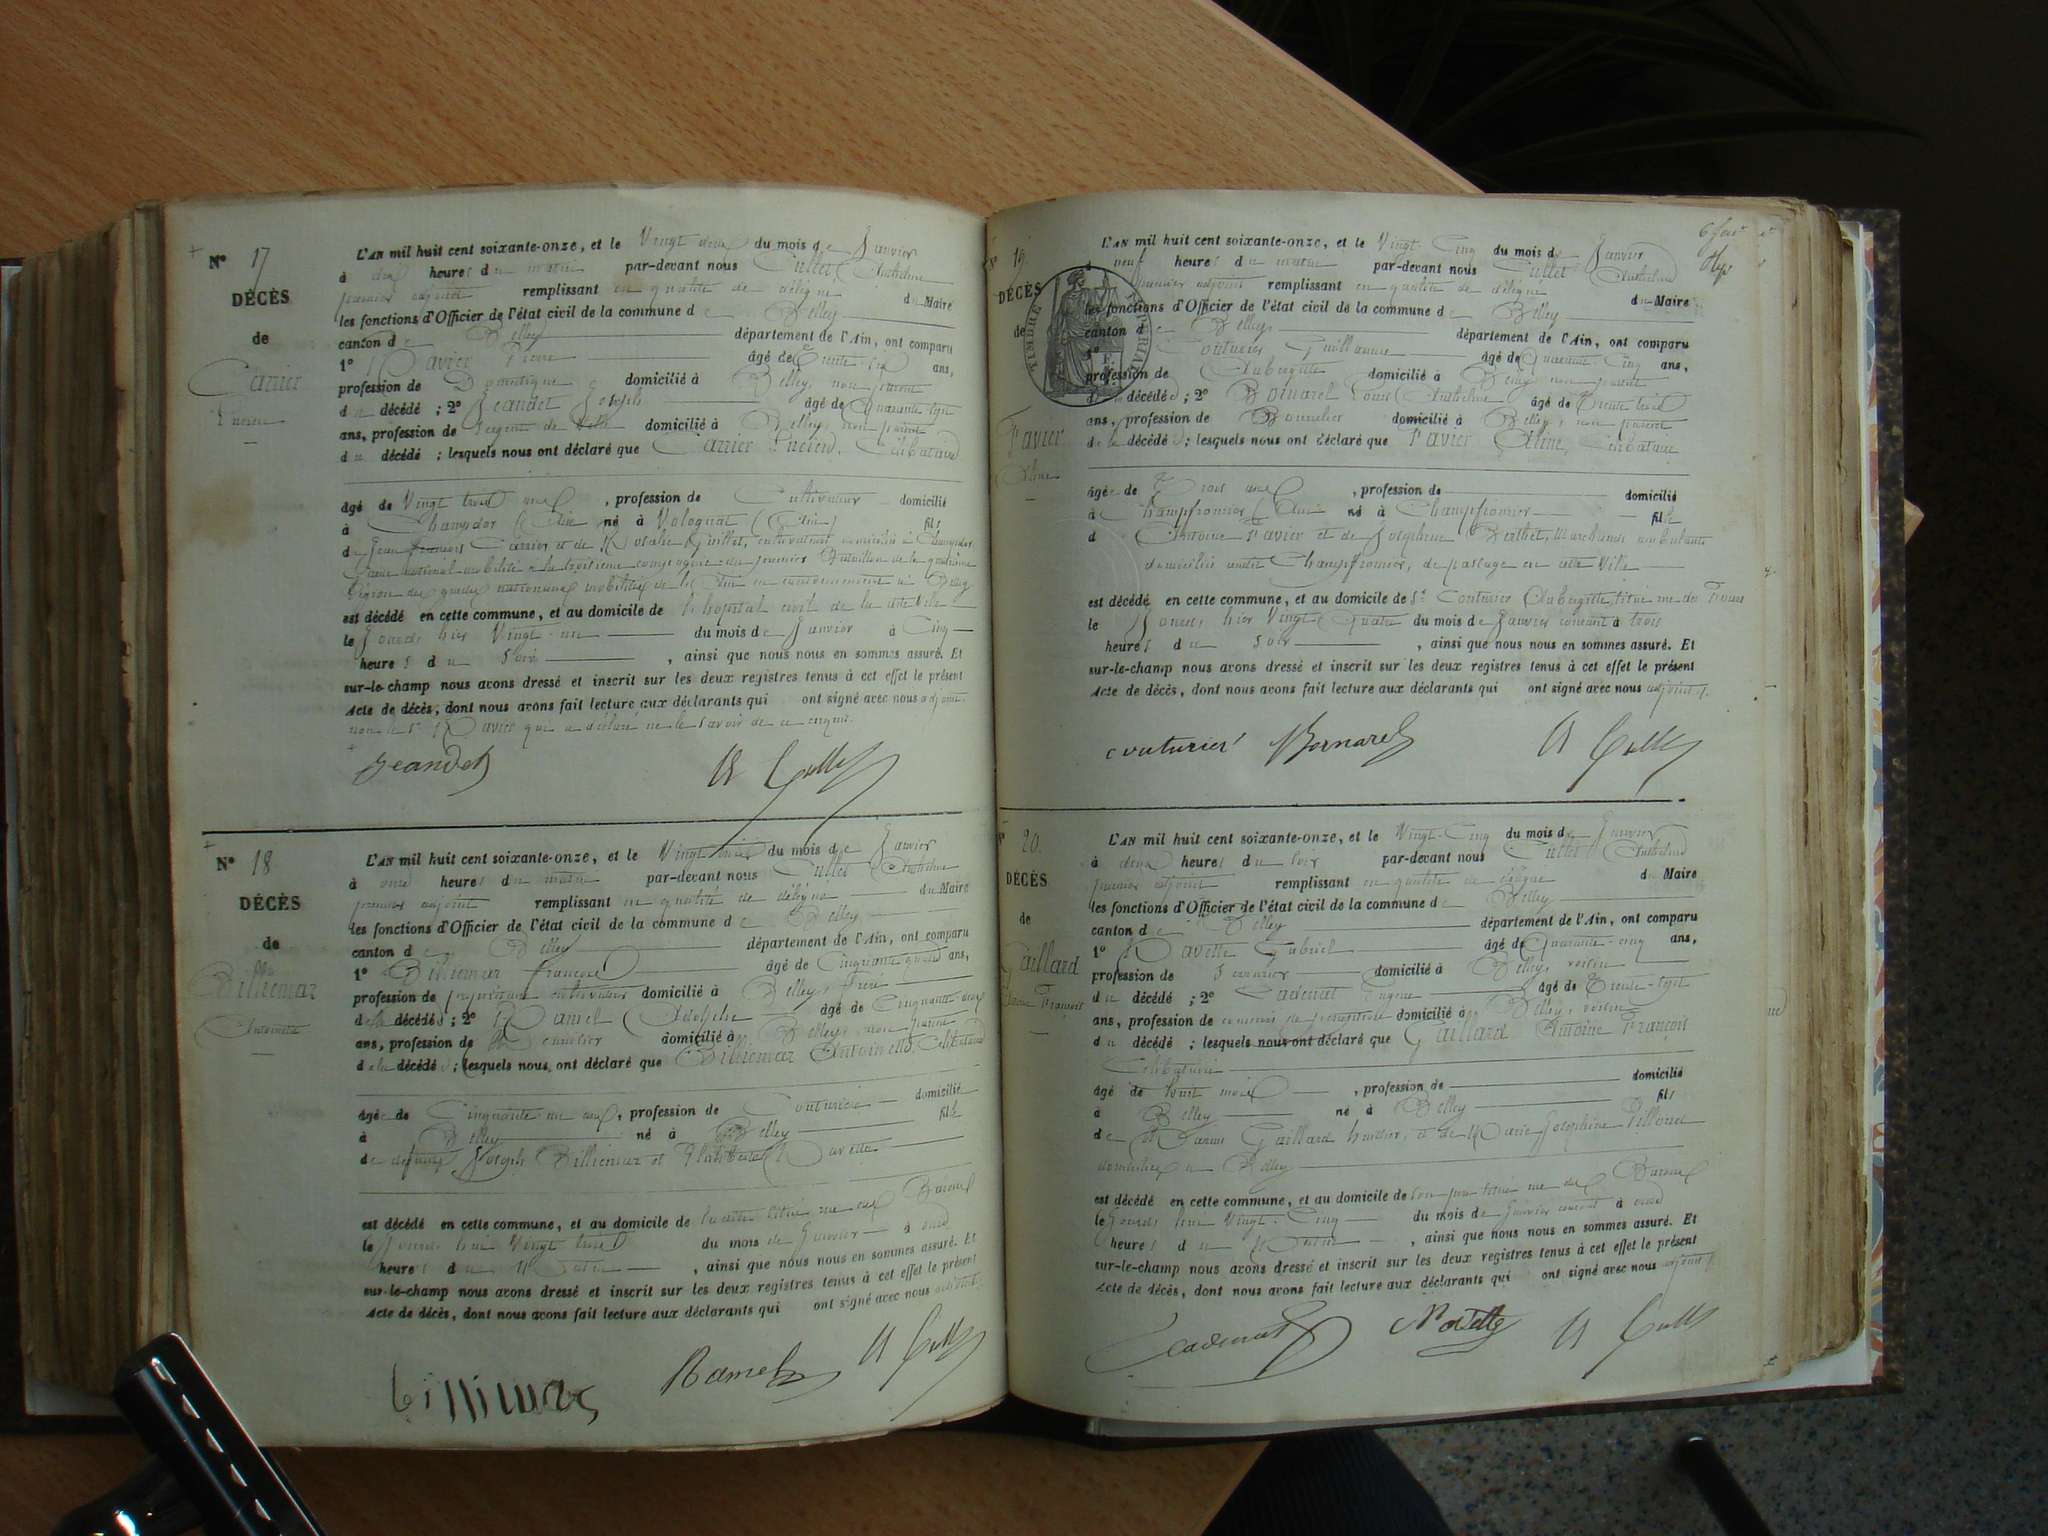 N° 17
DÉCÈS
de
Carrier
Lucien
L'AN mil huit cent soixante-onze, et le Vingt deux du mois de Janvier
à dix heures du matin par-devant nous Cullet Anthelme
premier adjoint remplissant en qualité de délégué du Maire
les fonctions d'Officier de l'état civil de la commune de Belley
canton de Belley département de l'Ain, ont comparu
1° Pierre âgé de trente six ans,
profession de Domestique domicilié à Belley, non parent
du décédé ; 2° Jeandet Joseph âgé de Quarante sept
ans, profession de Sergent de Ville domicilié à Belley, non parent
du décédé ; lesquels nous ont déclaré que Carrier Lucien, Célibataire
âgé de Vingt trois ans, profession de Cultivateur domicilié
à Champdor (Ain né à Volognat (Ain) fils
de Jean françois Carrier et de Rosalie Goillet, cultivateurs domiciliés à Champdor
Garde national mobilisé à la troisième compagnie du premier Bataillon de la quatrième
Légion des gardes nationaux mobilisés de l'Ain en cantonnement à Belley
est décédé en cette commune, et au domicile de l'hôpital civil de la dite Ville
le Jourds hier Vingt-un du mois de Janvier à Cinq
heures du Soir, ainsi que nous nous en sommes assuré. Et
sur-le-champ nous avons dressé et inscrit sur les deux registres tenus à cet effet le présent
Acte de décès, dont nous avons fait lecture aux déclarants qui ont signé avec nous adjoint
non le Sr qui a déclaré ne le savoir de ce enquis.
Jeandet A Cullet
N° 18
DÉCÈS
de
Billiemaz
Antoinette
L'AN mil huit cent soixante-onze, et le Vingt trois du mois de Janvier
à onze heures du matin par-devant nous Cullet Anthelme
premier adjoint remplissant en qualité de délégué du Maire
les fonctions d'Officier de l'état civil de la commune de Belley
canton de Belley département de l'Ain, ont comparu
1° Billiemaz françois âgé de Cinquante quatre ans,
profession de propriétaire cultivateur domicilié à Belley, frère
de la décédée ; 2° Ramel Adolphe âgé de Cinquante deux
ans, profession de domicilié à Belley, non parent
de la décédée ; lesquels nous ont déclaré que Billiemaz Antoinette, Célibataire
âgée de Cinquante un ans, profession de Couturière domicilié
à Belley né à Belley fille
de defunts Joseph Billiemaz et
est décédé en cette commune, et au domicile de la dite située rue des Barons
le Jourds hui Vingt trois du mois de Janvier à onze
heures du Matin, ainsi que nous nous en sommes assuré. Et
sur-le-champ nous avons dressé et inscrit sur les deux registres tenus à cet effet le présent
Acte de décès, dont nous avons fait lecture aux déclarants qui ont signé avec nous adjoint
billiemaz Ramel A Cullet
6
N° 19
DÉCÈS
de
Favier
Céline
TIMBRE IMPÉRIAL
L'AN mil huit cent soixante-onze, et le Vingt-Cinq du mois de Janvier
à neuf heures du matin par-devant nous Cullet Anthelme
premier adjoint remplissant en qualité de délégué du Maire
les fonctions d'Officier de l'état civil de la commune de Belley
canton de Belley département de l'Ain, ont comparu
1° Couturier Guillaume âgé de Quarante Cinq ans,
profession de Aubergiste domicilié à Belley non parent
de la décédée ; 2° Bornarel Louis Anthelme âgé de Trente trois
ans, profession de Bourrelier domicilié à Belley, non parent
de la décédée ; lesquels nous ont déclaré que Favier Céline, Célibataire
âgée de Trois ans, profession de domicilié
à Champfromier (Ain né à Champfromier fille
d Antoine Favier et de Josephine Berthet, Marchands ambulants
domiciliés audit Champfromier, de passage en cette Ville
est décédé en cette commune, et au domicile de Sr Couturier Aubergiste, située rue des Terreaux
le Jourds hier Vingt-Quatre du mois de Janvier courant à trois
heures du Soir, ainsi que nous nous en sommes assuré. Et
sur-le-champ nous avons dressé et inscrit sur les deux registres tenus à cet effet le présent
Acte de décès, dont nous avons fait lecture aux déclarants qui ont signé avec nous adjoint.
couturier Bornarel A Cullet
N° 20
DÉCÈS
de
Gaillard
Antoine François
L'AN mil huit cent soixante-onze, et le Vingt-Cinq du mois de Janvier
à deux heures du Soir par-devant nous Cullet Anthelme
premier adjoint remplissant en qualité de délégué du Maire
les fonctions d'Officier de l'état civil de la commune de Belley
canton de Belley département de l'Ain, ont comparu
1° Gabriel âgé de Quarante-cinq ans,
profession de Serrurier domicilié à Belley, voisin
du décédé ; 2° Cadenat Eugène âgé de Trente-sept
ans, profession de domicilié à Belley, voisin
du décédé ; lesquels nous ont déclaré que Gaillard Antoine François
Célibataire
âgé de huit mois, profession de domicilié
à Belley né à Belley fils
de Gaillard huissier, et de Marie Josephine
domiciliés à Belley
est décédé en cette commune, et au domicile de son père située rue des Barons
le Jourds hui Vingt-Cinq du mois de Janvier courant à onze
heures du Matin, ainsi que nous nous en sommes assuré. Et
sur-le-champ nous avons dressé et inscrit sur les deux registres tenus à cet effet le présent
Acte de décès, dont nous avons fait lecture aux déclarants qui ont signé avec nous adjoint.
Cadenat A Cullet